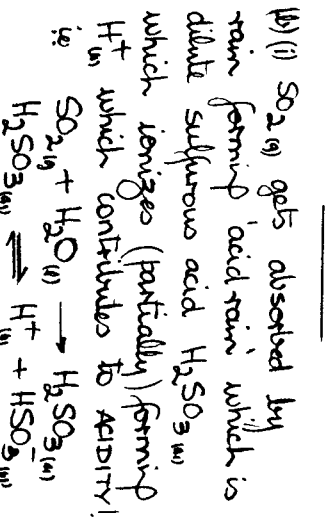 (b)(i) SO₂(g) gets absorbed by
rain forming 'acid rain' which is
dilute sulfurous acid H₂SO₃(aq)
which ionizes (partially) forming
H⁺(aq) which contributes to ACIDITY!
i.e
SO₂(g) + H₂O(l) → H₂SO₃(aq)
H₂SO₃(aq) ⇌ H⁺(aq) + HSO₃⁻(aq)